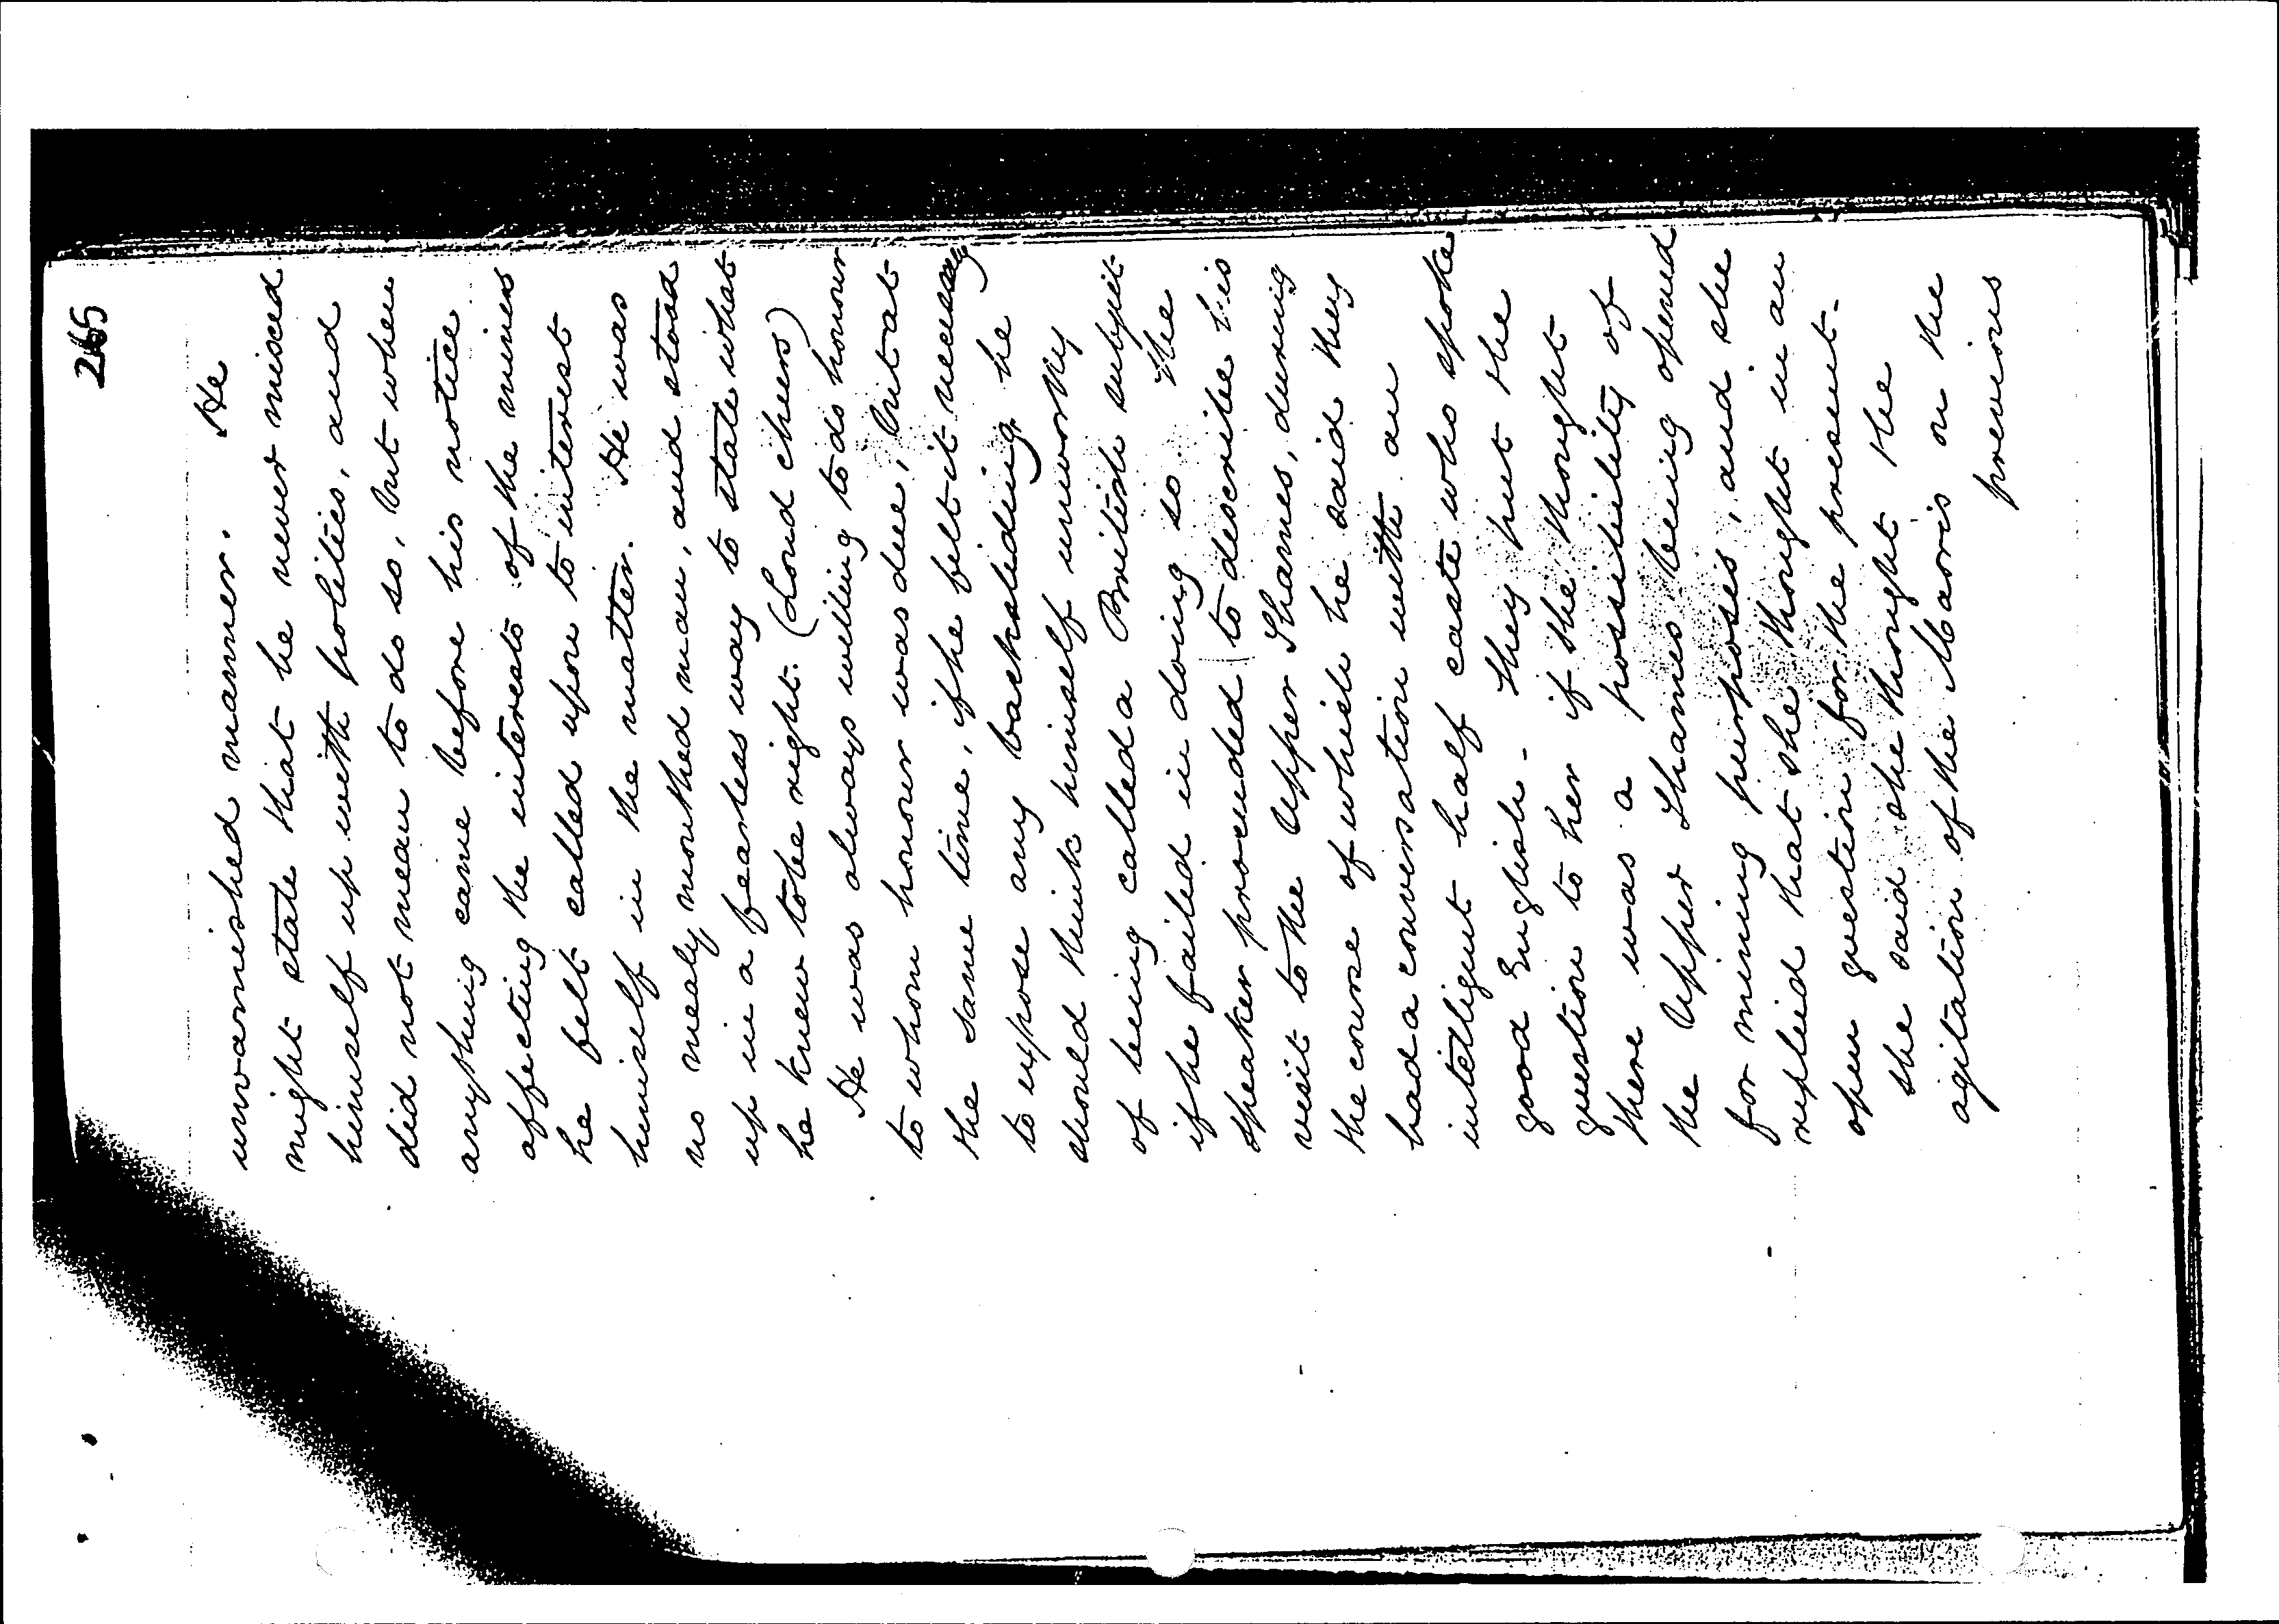 265
unvarnished manner. He
might state that he never mixed
himself up with politics, and
did not mean to do so, but when
anything came before his notice
affecting the interests of the miners
he felt called upon to interest
himself in the matter. He was
no mealy mouthed man, and stood
up in a fearless way to state what
he knew to be right. (Loud cheers)
He was always willing to do honour
to whom honour was due, but at
the same time, if he felt it necessary
to expose any backsliding, he
should think himself unworthy
of being called a British subject
if he failed in doing so. The
speaker proceeded to describe his
visit to the Upper Thames, during
the course of which he said they
had a conversation with an
intelligent half caste who spoke
good English. They put the
question to her if she thought
there was a possibility of
the Upper Thames being opened
for mining purposes, and she
replied that she thought in an
open question for the present.
She said she thought the
agitation of the Maoris on the
previous